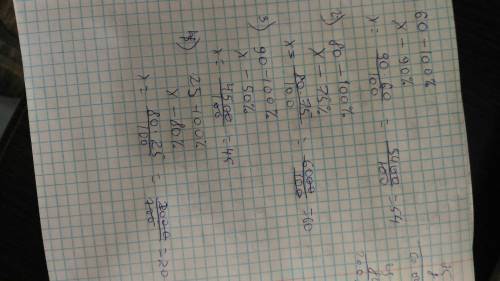 60 - 100%
x - 90%
x = 90·60/100 = 5400/100 = 54
2) 80 - 100%
x - 75%
x = 80·75/100 = 6000/100 = 60
3) 90 - 100%
x - 50%
x = 4500/100 = 45
4) 25 - 100%
x - 80%
x = 80·25/100 = 2000/100 = 20